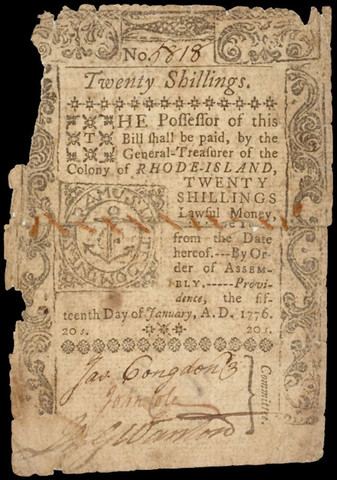 No. 5818
Twenty Shillings.
THE Possessor of this
Bill shall be paid, by the
General-Treasurer of the
Colony of RHODE-ISLAND,
TWENTY
SHILLINGS
Lawful Money,
from the Date
hereof.---By Or-
der of ASSEM-
BLY.-----Provi-
dence, the fif-
teenth Day of January, A. D. 1776.
20s. 20s.
Jas. Congdon 3
John Cole
Committee.